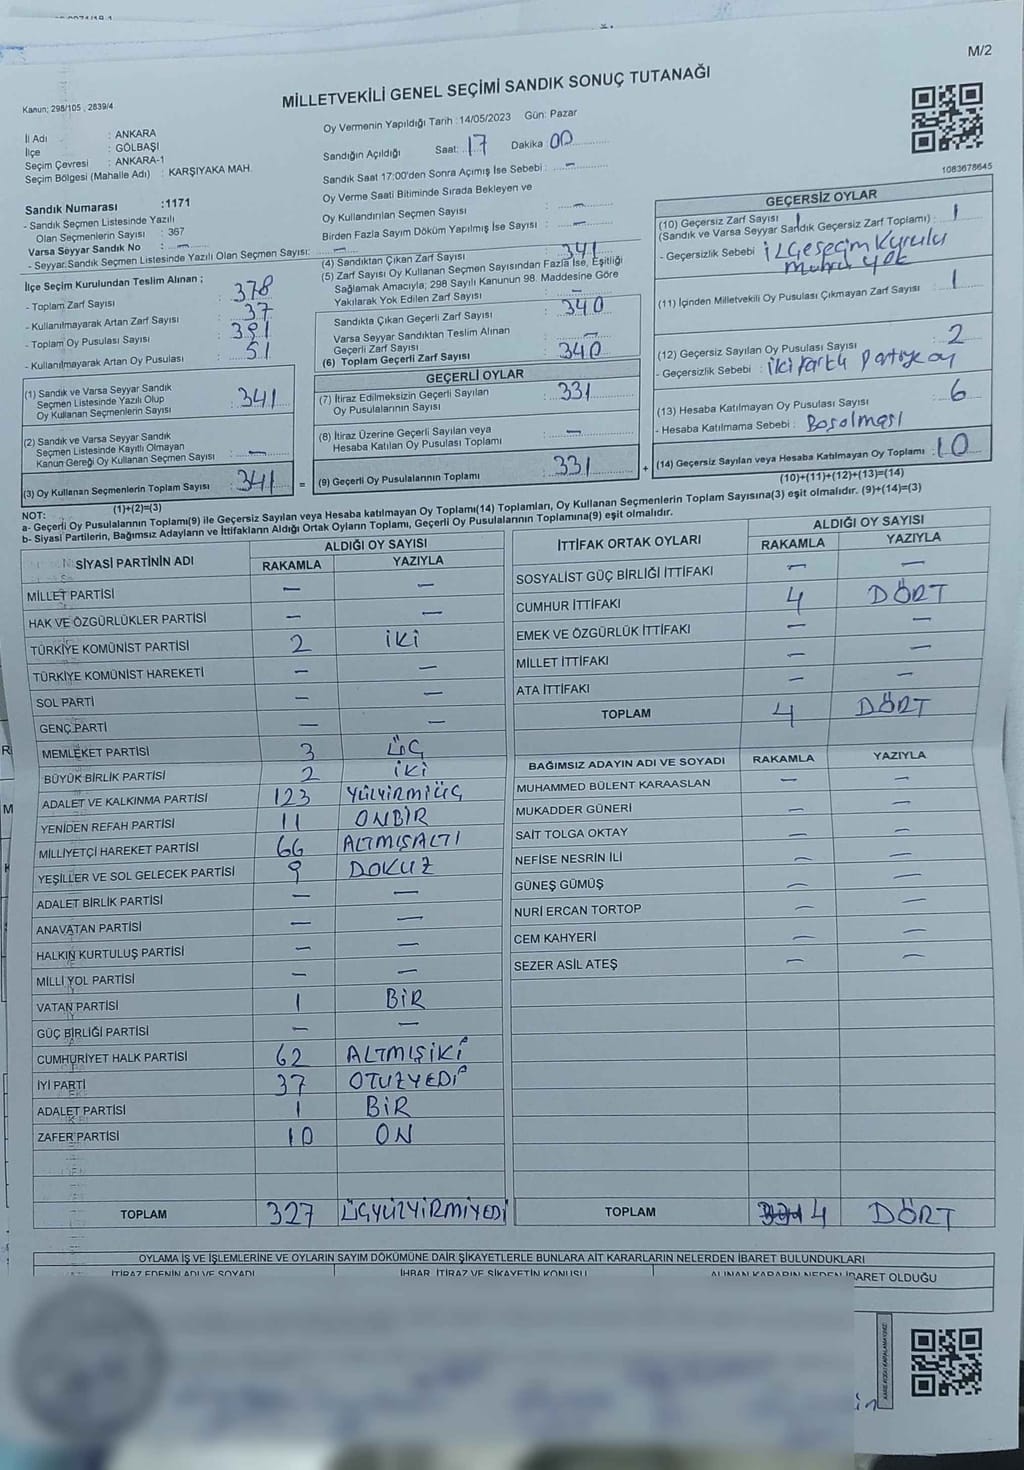 M/2
Kanun; 298/105 , 2839/4
MİLLETVEKİLİ GENEL SEÇİMİ SANDIK SONUÇ TUTANAĞI
İl Adı : ANKARA
İlçe : GÖLBAŞI
Seçim Çevresi : ANKARA-1
Seçim Bölgesi (Mahalle Adı) : KARŞIYAKA MAH.
Sandık Numarası :1171
- Sandık Seçmen Listesinde Yazılı
Olan Seçmenlerin Sayısı : 367
Varsa Seyyar Sandık No : —
- Seyyar Sandık Seçmen Listesinde Yazılı Olan Seçmen Sayısı: —
Oy Vermenin Yapıldığı Tarih :14/05/2023 Gün: Pazar
Sandığın Açıldığı Saat: 17 Dakika 00
Sandık Saat 17:00'den Sonra Açımış İse Sebebi : —
Oy Verme Saati Bitiminde Sırada Bekleyen ve
Oy Kullandırılan Seçmen Sayısı : —
Birden Fazla Sayım Döküm Yapılmış İse Sayısı : —
1083678645
İlçe Seçim Kurulundan Teslim Alınan ;
- Toplam Zarf Sayısı : 378
- Kullanılmayarak Artan Zarf Sayısı : 37
- Toplam Oy Pusulası Sayısı : 391
- Kullanılmayarak Artan Oy Pusulası : 51
(1) Sandık ve Varsa Seyyar Sandık
Seçmen Listesinde Yazılı Olup
Oy Kullanan Seçmenlerin Sayısı : 341
(2) Sandık ve Varsa Seyyar Sandık
Seçmen Listesinde Kayıtlı Olmayan
Kanun Gereği Oy Kullanan Seçmen Sayısı : —
(3) Oy Kullanan Seçmenlerin Toplam Sayısı : 341
(1)+(2)=(3)
(4) Sandıktan Çıkan Zarf Sayısı : 341
(5) Zarf Sayısı Oy Kullanan Seçmen Sayısından Fazla İse, Eşitliği
Sağlamak Amacıyla; 298 Sayılı Kanunun 98. Maddesine Göre
Yakılarak Yok Edilen Zarf Sayısı : —
Sandıkta Çıkan Geçerli Zarf Sayısı : 340
Varsa Seyyar Sandıktan Teslim Alınan
Geçerli Zarf Sayısı : —
(6) Toplam Geçerli Zarf Sayısı : 340
GEÇERLİ OYLAR
(7) İtiraz Edilmeksizin Geçerli Sayılan
Oy Pusulalarının Sayısı : 331
(8) İtiraz Üzerine Geçerli Sayılan veya
Hesaba Katılan Oy Pusulası Toplamı : —
(9) Geçerli Oy Pusulalarının Toplamı : 331
GEÇERSİZ OYLAR
(10) Geçersiz Zarf Sayısı 1
(Sandık ve Varsa Seyyar Sandık Geçersiz Zarf Toplamı) : 1
- Geçersizlik Sebebi İLÇE seçim Kurulu
mührü yok
(11) İçinden Milletvekili Oy Pusulası Çıkmayan Zarf Sayısı : 1
(12) Geçersiz Sayılan Oy Pusulası Sayısı : 2
- Geçersizlik Sebebi : iki farklı partiye oy
(13) Hesaba Katılmayan Oy Pusulası Sayısı : 6
- Hesaba Katılmama Sebebi : Boş olması
(14) Geçersiz Sayılan veya Hesaba Katılmayan Oy Toplamı : 10
(10)+(11)+(12)+(13)=(14)
NOT:
a- Geçerli Oy Pusulalarının Toplamı(9) ile Geçersiz Sayılan veya Hesaba katılmayan Oy Toplamı(14) Toplamları, Oy Kullanan Seçmenlerin Toplam Sayısına(3) eşit olmalıdır. (9)+(14)=(3)
b- Siyasi Partilerin, Bağımsız Adayların ve İttifakların Aldığı Ortak Oyların Toplamı, Geçerli Oy Pusulalarının Toplamına(9) eşit olmalıdır.
SİYASİ PARTİNİN ADI ALDIĞI OY SAYISI
RAKAMLA YAZIYLA
MİLLET PARTİSİ — —
HAK VE ÖZGÜRLÜKLER PARTİSİ — —
TÜRKİYE KOMÜNİST PARTİSİ 2 İKİ
TÜRKİYE KOMÜNİST HAREKETİ — —
SOL PARTİ — —
GENÇ PARTİ — —
MEMLEKET PARTİSİ 3 ÜÇ
BÜYÜK BİRLİK PARTİSİ 2 İKİ
ADALET VE KALKINMA PARTİSİ 123 YÜZYİRMİÜÇ
YENİDEN REFAH PARTİSİ 11 ONBİR
MİLLİYETÇİ HAREKET PARTİSİ 66 ALTMIŞALTI
YEŞİLLER VE SOL GELECEK PARTİSİ 9 DOKUZ
ADALET BİRLİK PARTİSİ — —
ANAVATAN PARTİSİ — —
HALKIN KURTULUŞ PARTİSİ — —
MİLLİ YOL PARTİSİ — —
VATAN PARTİSİ 1 BİR
GÜÇ BİRLİĞİ PARTİSİ — —
CUMHURİYET HALK PARTİSİ 62 ALTMIŞİKİ
İYİ PARTİ 37 OTUZYEDİ
ADALET PARTİSİ 1 BİR
ZAFER PARTİSİ 10 ON
TOPLAM 327 ÜÇYÜZYİRMİYEDİ
İTTİFAK ORTAK OYLARI ALDIĞI OY SAYISI
RAKAMLA YAZIYLA
SOSYALİST GÜÇ BİRLİĞİ İTTİFAKI — —
CUMHUR İTTİFAKI 4 DÖRT
EMEK VE ÖZGÜRLÜK İTTİFAKI — —
MİLLET İTTİFAKI — —
ATA İTTİFAKI — —
TOPLAM 4 DÖRT
BAĞIMSIZ ADAYIN ADI VE SOYADI RAKAMLA YAZIYLA
MUHAMMED BÜLENT KARAASLAN — —
MUKADDER GÜNERİ — —
SAİT TOLGA OKTAY — —
NEFİSE NESRİN İLİ — —
GÜNEŞ GÜMÜŞ — —
NURİ ERCAN TORTOP — —
CEM KAHYERİ — —
SEZER ASİL ATEŞ — —
TOPLAM 4 DÖRT
OYLAMA İŞ VE İŞLEMLERİNE VE OYLARIN SAYIM DÖKÜMÜNE DAİR ŞİKAYETLERLE BUNLARA AİT KARARLARIN NELERDEN İBARET BULUNDUKLARI
İTİRAZ EDENİN ADI VE SOYADI İHBAR, İTİRAZ VE ŞİKAYETİN KONUSU ALINAN KARARIN NEDEN İBARET OLDUĞU